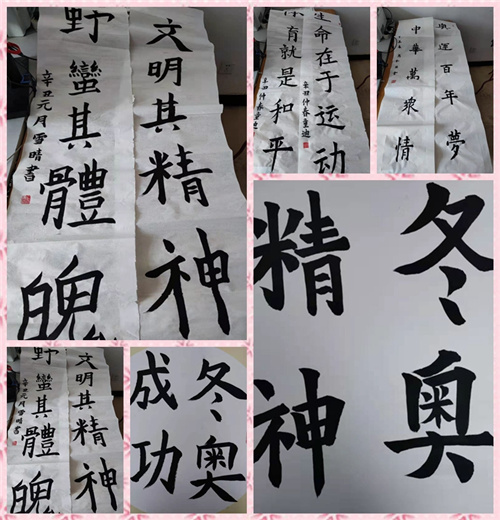 文明其精神
野蠻其體魄
辛丑元月雪晴書
生命在于运动
辛丑仲春童迪
体育就是和平
奥运百年夢
中華萬衆情
冬奥
精神
文明其精神
野蠻其體魄
辛丑元月雪晴書
冬奥
成功